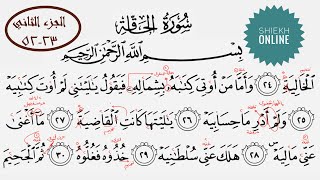 الجزء الثاني
٢٣-٥٢
سُورَةُ الحَاقَّةِ
SHIEKH
ONLINE
بِسْمِ اللَّهِ الرَّحْمَٰنِ الرَّحِيمِ
الْخَالِيَةِ ٢٤ وَأَمَّا مَنْ أُوتِيَ كِتَٰبَهُۥ بِشِمَالِهِۦ فَيَقُولُ يَٰلَيْتَنِي لَمْ أُوتَ كِتَٰبِيَهْ
٢٥ وَلَمْ أَدْرِ مَا حِسَابِيَهْ ٢٦ يَٰلَيْتَهَا كَانَتِ الْقَاضِيَةَ ٢٧ مَا أَغْنَىٰ
عَنِّي مَالِيَهْ ٢٨ هَلَكَ عَنِّي سُلْطَٰنِيَهْ ٢٩ خُذُوهُ فَغُلُّوهُ ٣٠ ثُمَّ الْجَحِيمَ